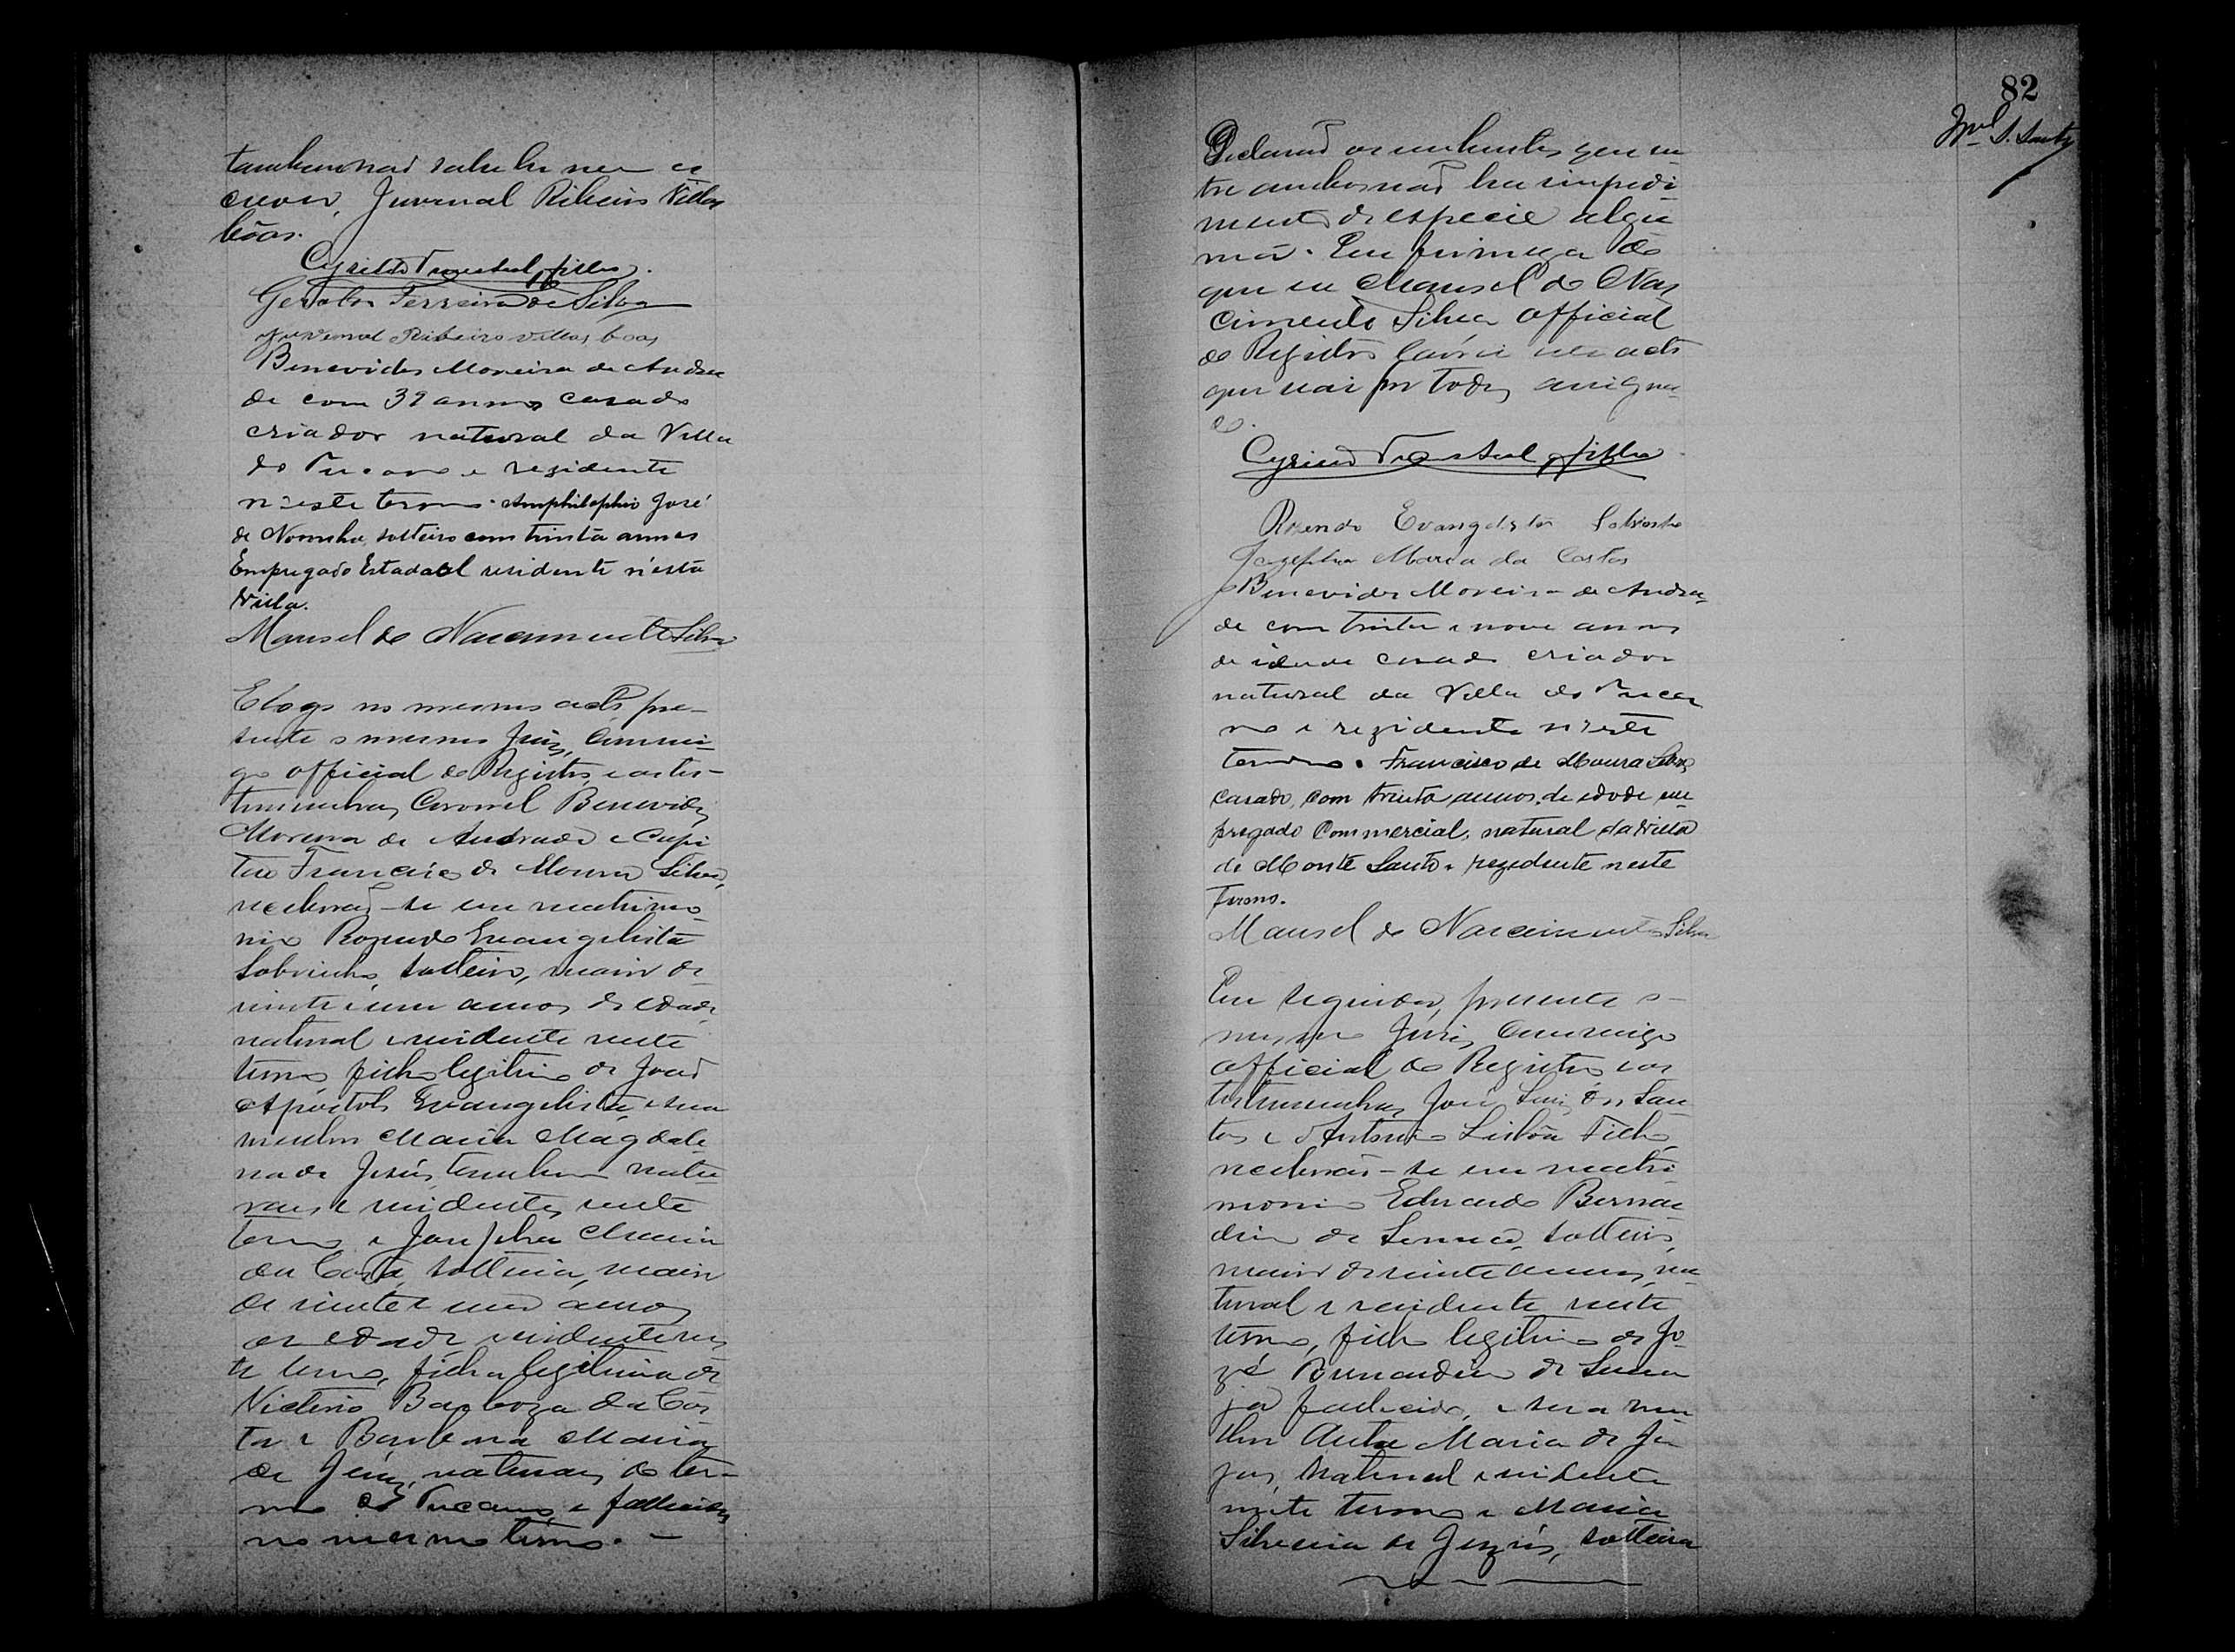 tambem não sabe ler nem es
crever, Juvenal Ribeiro Villas
bôas.
Geraldo Ferreira da Silva
Juvenal Ribeiro villas boas
Benevides Moreira de Andra
de com 39 annos casado
criador natural da Villa
do Tucano e rezidente
n'este termo. Amphilophio José
de Noronha, solteiro com trinta annos
Empregado Estadoal residente n'esta
Villa.
Manoel do Nascimento Silva
E logo no mesmo acto pre-
sente o mesmo Juiz, Commi-
go official do Registro e as tes-
timunhas Coronel Benevides
Moreira de Andrade e Capi
tão Francisco de Moura Silva,
receberão-se em matrimo-
nio Rozendo Evangelista
Sobrinho, solteiro, maior de
vinte e um annos de edade,
natural e residente neste
termo, filho legitimo de João
Apostolo Evangelista, e sua
mulher Maria Magdale
na de Jesús, tambem natu
raes e residentes neste
termo e Josepha Maria
da Costa, solteira, maior
de vinte e um annos
de edade residente nes
te termo, filha legitima de
Victorio Barboza da Cos
ta e Barbara Maria
de Jesus, naturaes do ter-
mo de Tucano e fallecidos
no mesmo termo. -
82
Declarão os nubentes que en
tre ambos não ha impedi
mento de especie algu
ma. Em firmeza do
que eu Manoel do Nas
cimento Silva official
do Registro lavrei este acto
que vai por todos assigna
do.
Rozendo Evangelista Sobrinho
Josepha Maria da Costa
Benevides Moreira de Andra
de com trinta e nove annos
de idade casado criador
natural da Villa do Tuca
no e rezidente n'este
termo. Francisco de Moura Silva,
casado, com trinta annos, de edade em
pregado Commercial, natural da Villa
de Monte Santo e rezidente neste
Termo.
Manoel do Nascimento Silva
Em seguida, presente o
mesmo Juiz, Commigo
official do Registro e as
testimunhas José Luiz dos San
tos e Antonio Lisbôa Filho,
receberão-se em matri
monio Eduardo Bernar
dino de Senna, solteiro,
maior de vinte annos, na
tural e residente neste
termo, filho legitimo de Jo
zé Bernardino de Senna
já fallecido, e sua mu
lher Anna Maria de Je
zus, natural e residente
neste termo e Maria
Silveria de Jezús, solteira